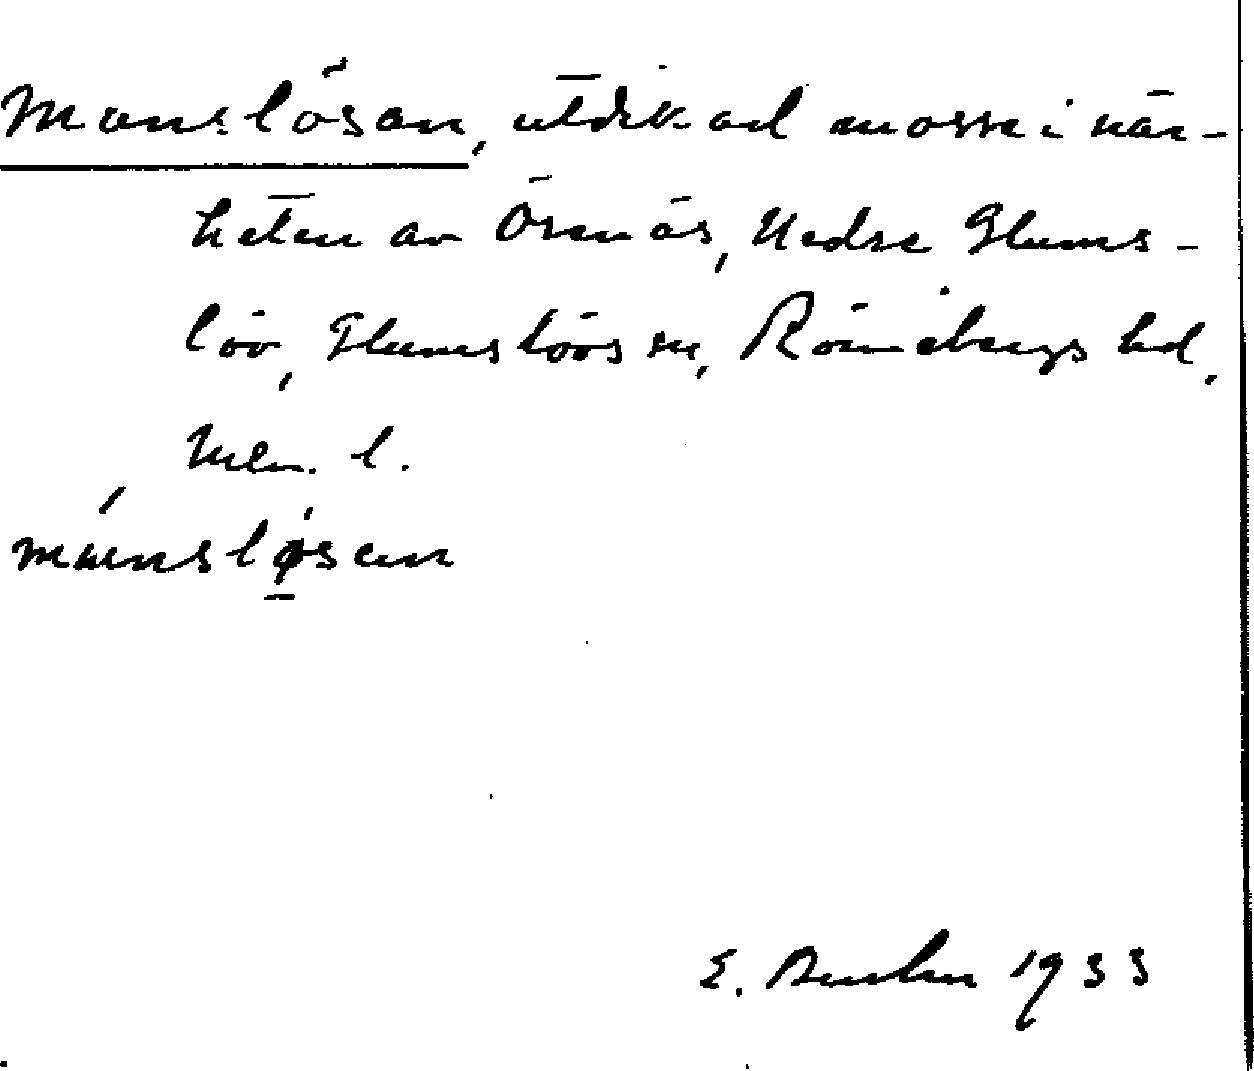 Manslösan, utdikad mosse i när-
heten av Örenäs, Nedre Glums-
löv, Glumslövs sn, Rönnebergs hd,
Mlm. l.
mánslø̱san
E. 1933